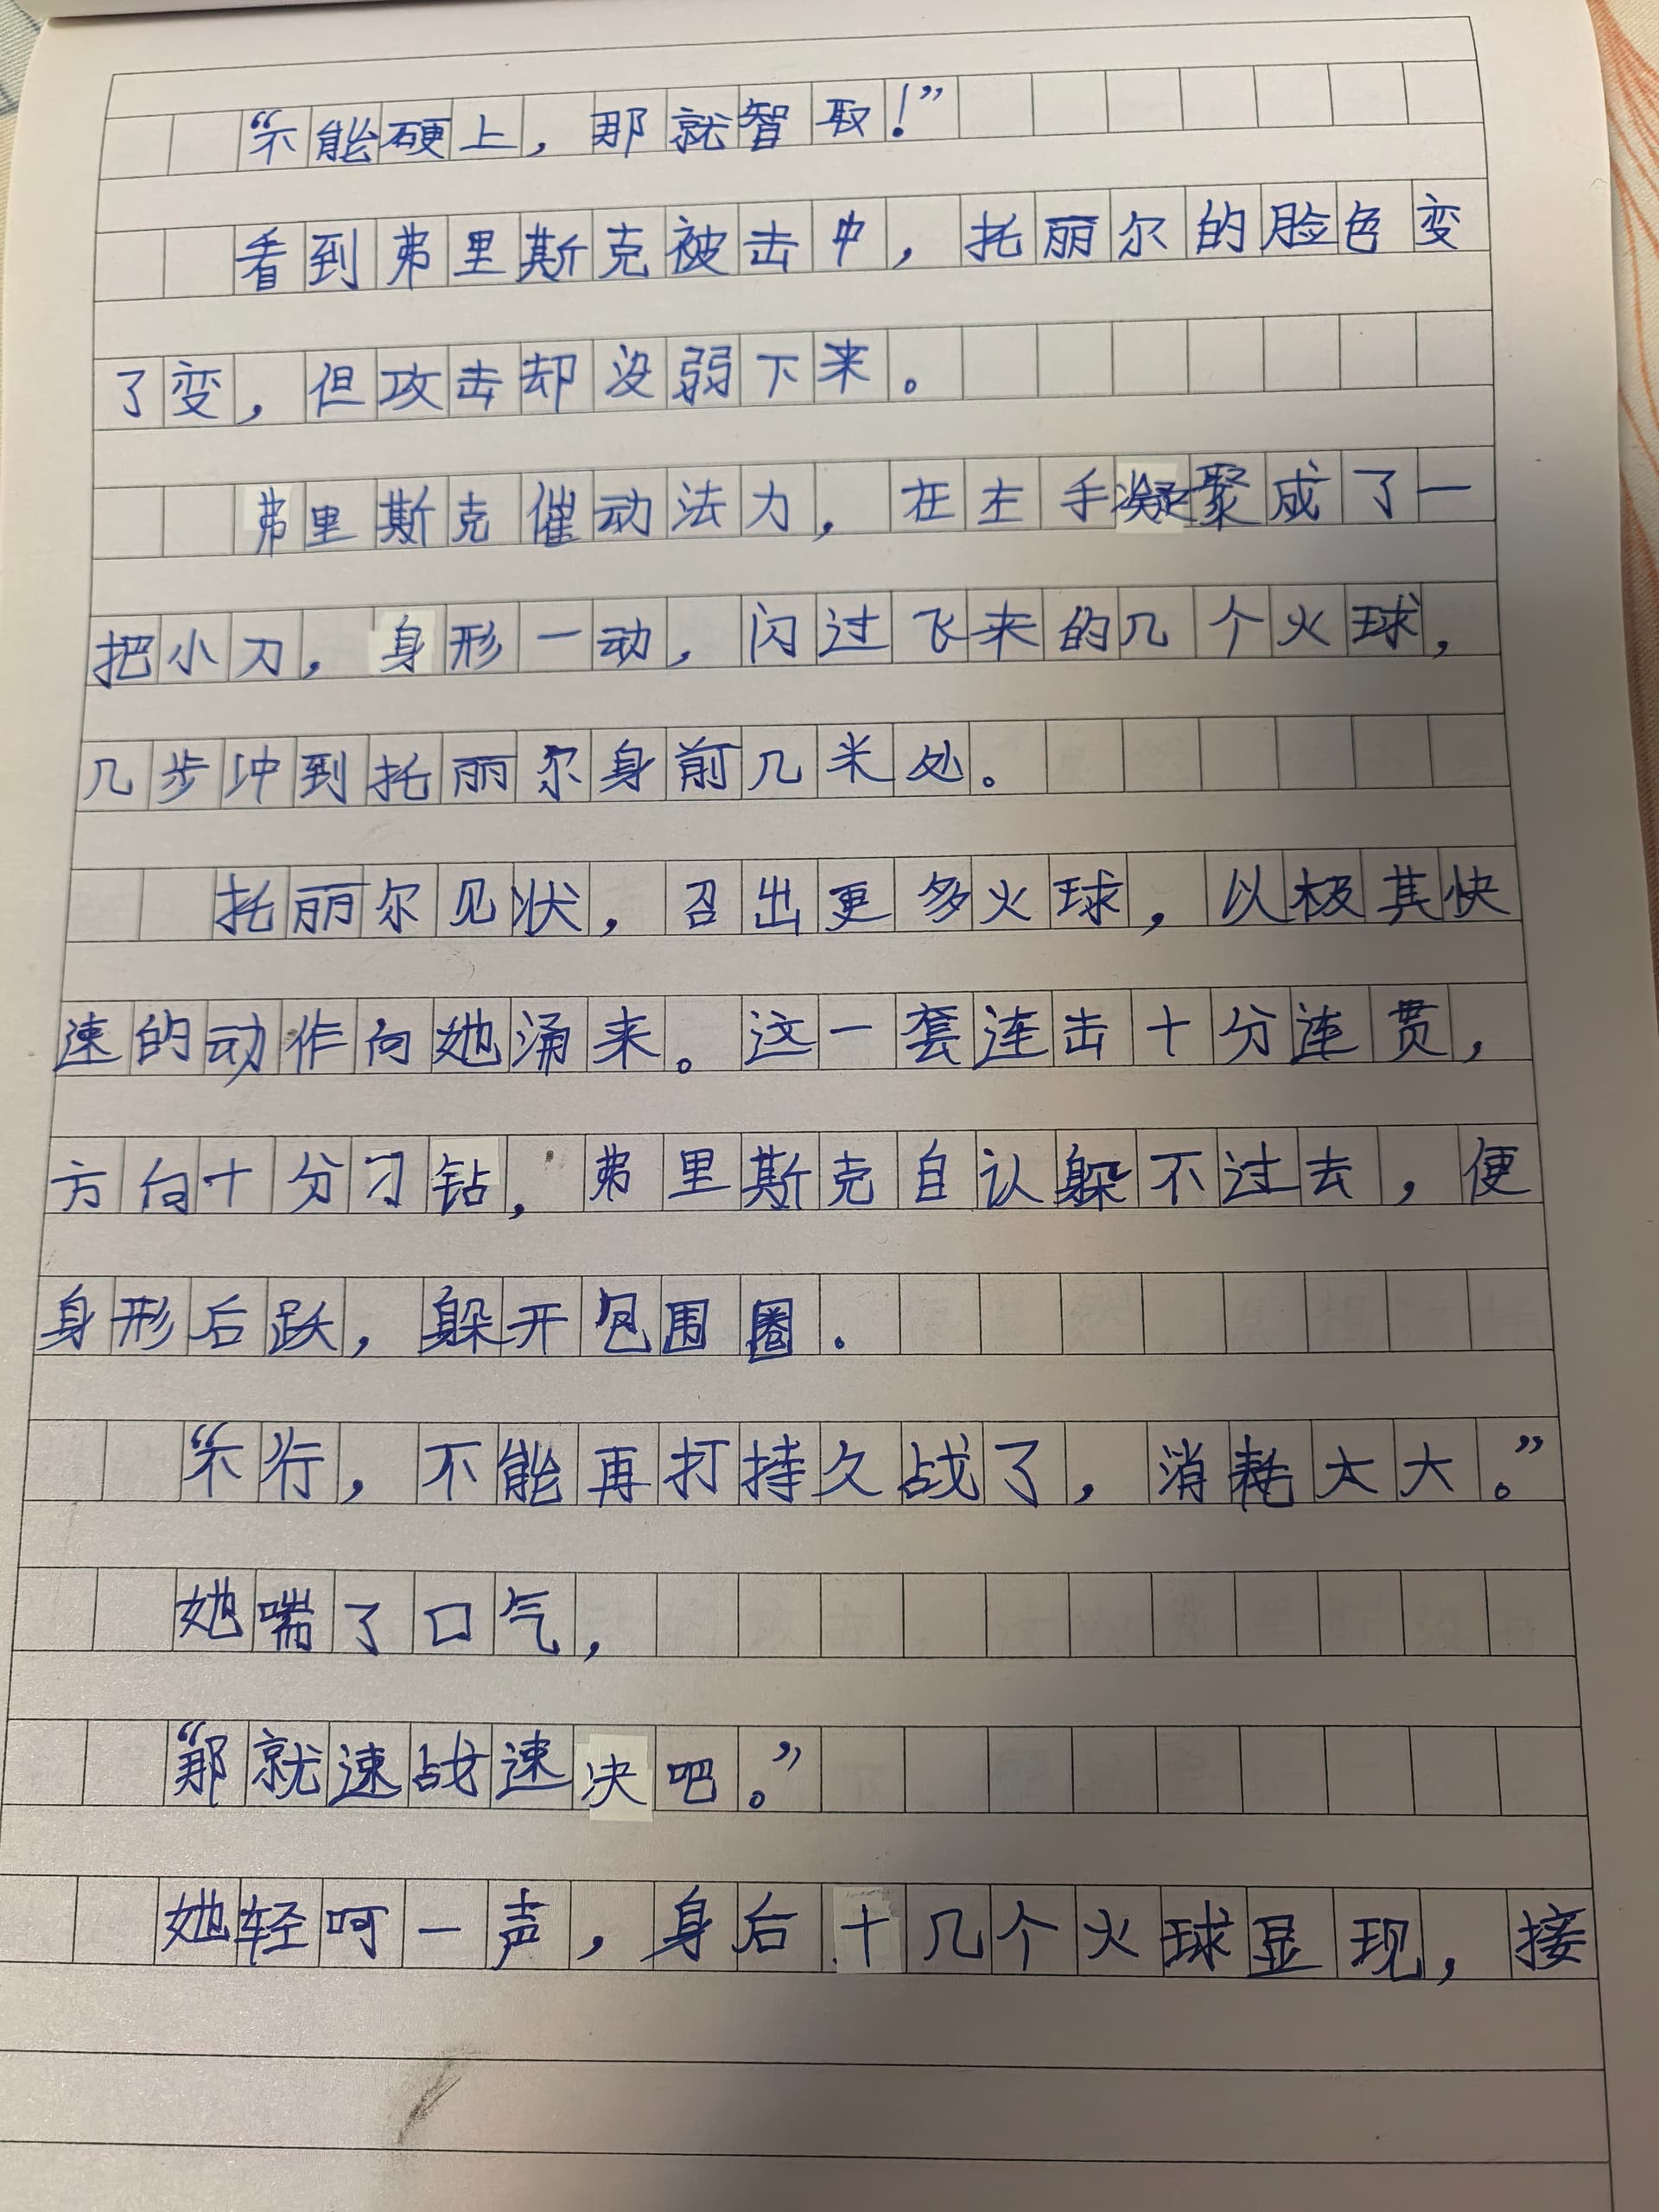 “不能硬上，那就智取！”
看到弗里斯克被击中，托丽尔的脸色变
了变，但攻击却没弱下来。
弗里斯克催动法力，在左手凝聚成了一
把小刀，身形一动，闪过飞来的几个火球，
几步冲到托丽尔身前几米处。
托丽尔见状，召出更多火球，以极其快
速的动作向她涌来。这一套连击十分连贯，
方向十分刁钻，弗里斯克自认躲不过去，便
身形后跃，躲开包围圈。
“不行，不能再打持久战了，消耗太大。”
她喘了口气，
“那就速战速决吧。”
她轻呵一声，身后十几个火球显现，接